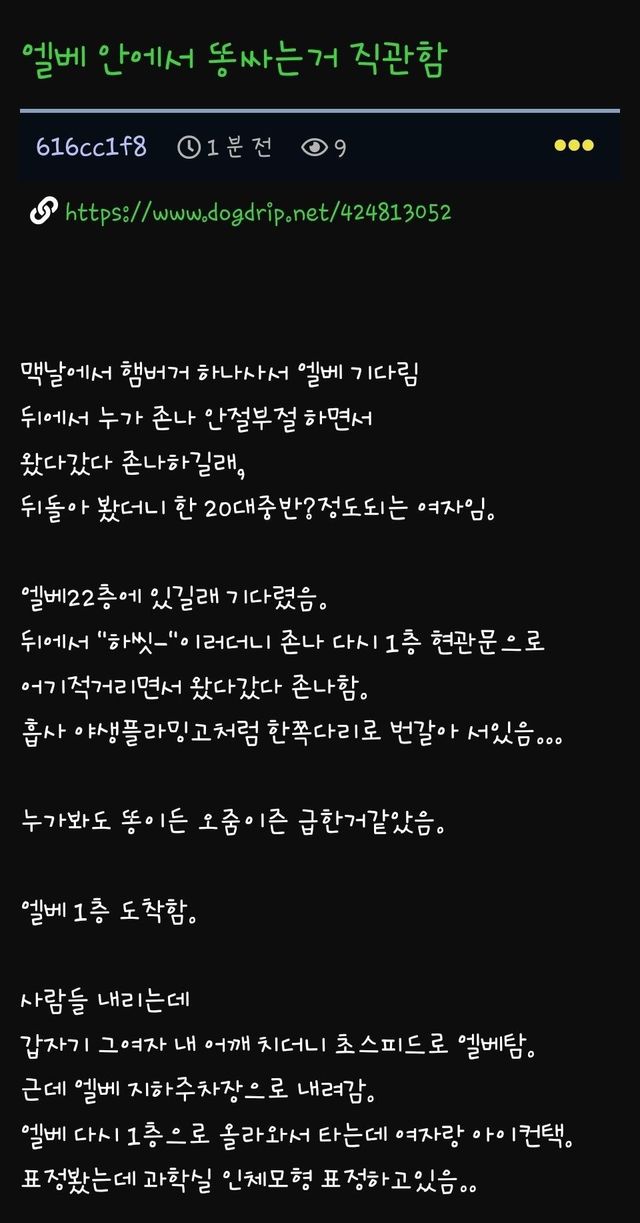 엘베 안에서 똥싸는거 직관함
616cc1f8 1 분 전 9
https://www.dogdrip.net/424813052
맥날에서 햄버거 하나사서 엘베 기다림
뒤에서 누가 존나 안절부절 하면서
왔다갔다 존나하길래,
뒤돌아 봤더니 한 20대중반?정도되는 여자임.
엘베22층에 있길래 기다렸음.
뒤에서 "하씻-"이러더니 존나 다시 1층 현관문으로
어기적거리면서 왔다갔다 존나함.
흡사 야생플라밍고처럼 한쪽다리로 번갈아 서있음...
누가봐도 똥이든 오줌이즌 급한거같았음.
엘베 1층 도착함.
사람들 내리는데
갑자기 그여자 내 어깨 치더니 초스피드로 엘베탐.
근데 엘베 지하주차장으로 내려감.
엘베 다시 1층으로 올라와서 타는데 여자랑 아이컨택.
표정봤는데 과학실 인체모형 표정하고있음..